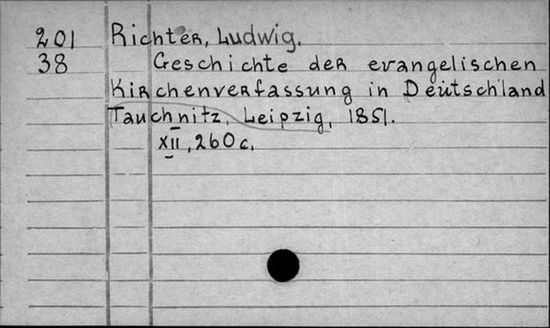 201 Richter, Ludwig.
38 Geschichte der evangelischen
Kirchenverfassung in Deutschland
Tauchnitz, Leipzig, 1851.
XII, 260 c.